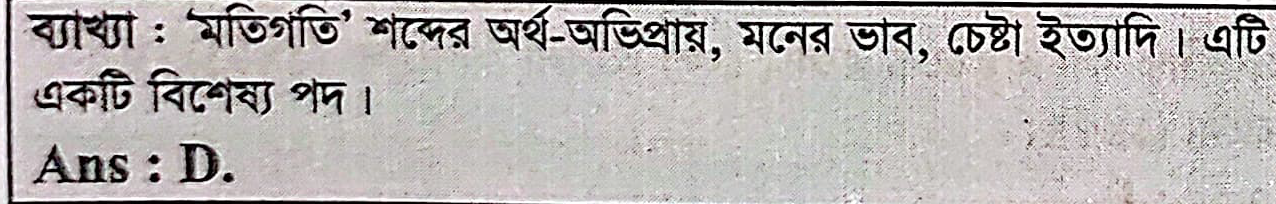 ব্যাখ্যা : 'মতিগতি' শব্দের অর্থ-অভিপ্রায়, মনের ভাব, চেষ্টা ইত্যাদি। এটি
একটি বিশেষ্য পদ।
Ans : D.